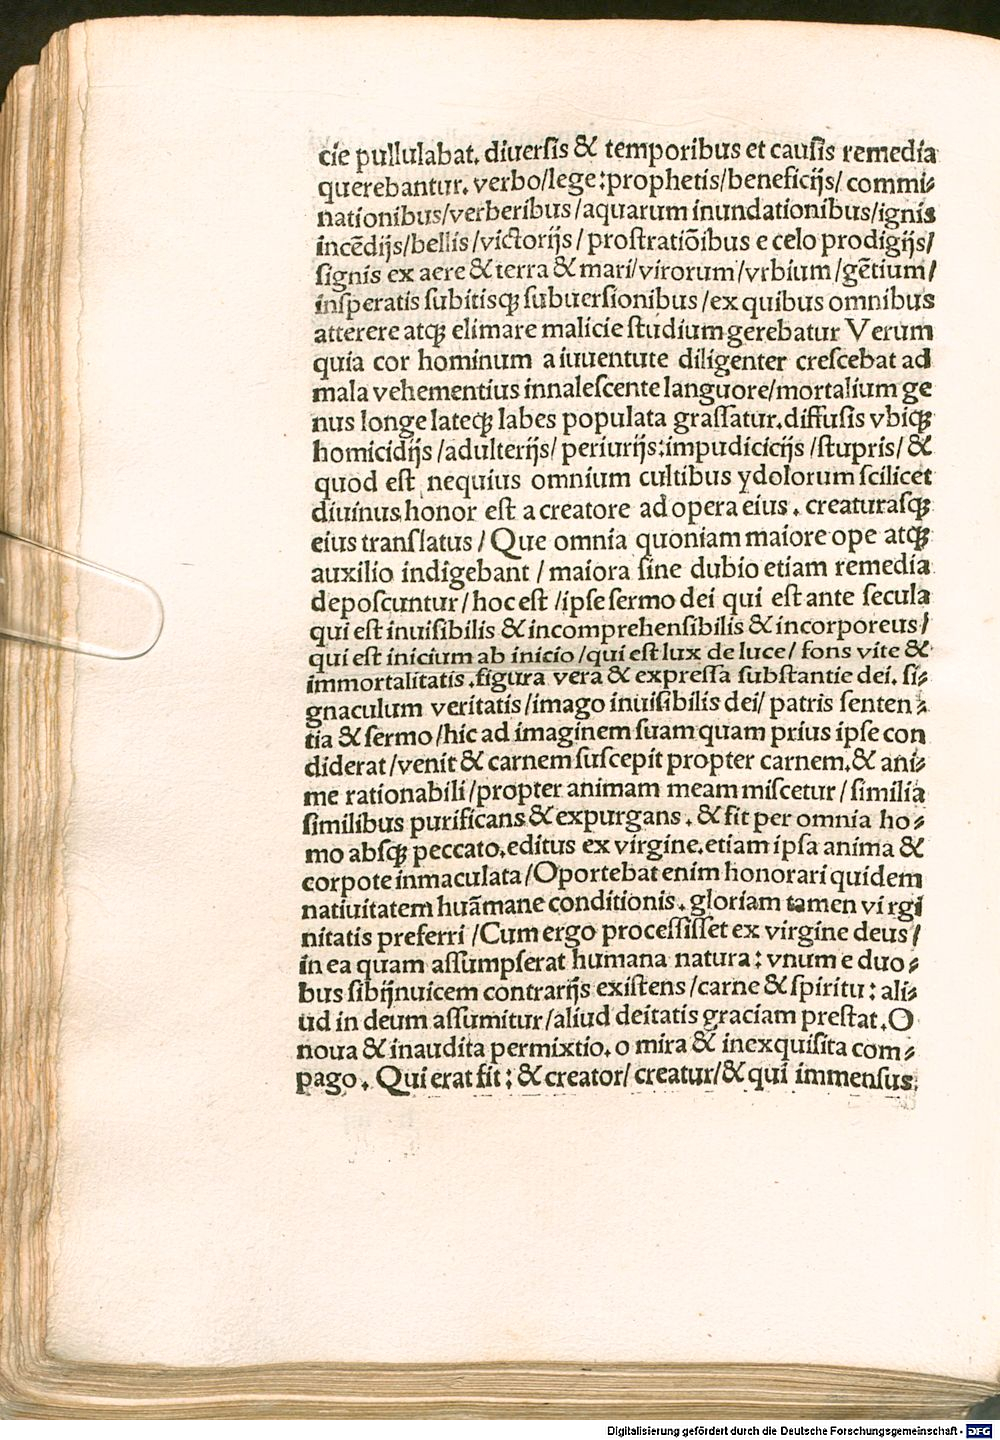 cie pullulabat. diuersis & temporibus et causis remedia
querebantur. verbo/lege:prophetis/beneficijs/ commi⸗
nationibus/verberibus/aquarum inundationibus/ignis
incēdijs/bellis/victorijs/prostratiōibus e celo prodigijs/
signis ex aere & terra & mari/virorum/vrbium/gētium/
insperatis subitisqꝫ subuersionibus/ex quibus omnibus
atterere atqꝫ elimare malicie studium gerebatur Verum
quia cor hominum a iuuentute diligenter crescebat ad
mala vehementius innalescente languore/mortalium ge
nus longe lateqꝫ labes populata grassatur.diffusis vbiqꝫ
homicidijs/adulterijs/ periurijs:impudicicijs/stupris/ &
quod est nequius omnium cultibus ydolorum scilicet
diuinus honor est a creatore ad opera eius. creaturasqꝫ
eius translatus/ Que omnia quoniam maiore ope atqꝫ
auxilio indigebant/maiora sine dubio etiam remedia
deposcuntur/hoc est/ipse sermo dei qui est ante secula
qui est inuisibilis & incomprehensibilis & incorporeus/
qui est inicium ab inicio/qui est lux de luce/ fons vite &
immortalitatis.figura vera & expressa substantie dei. si⸗
gnaculum veritatis/imago inuisibilis dei/ patris senten⸗
tia & sermo/hic ad imaginem suam quam prius ipse con
diderat/venit & carnem suscepit propter carnem.& ani⸗
me rationabili/propter animam meam miscetur/similia
similibus purificans & expurgans. & fit per omnia ho⸗
mo absqꝫ peccato.editus ex virgine.etiam ipsa anima &
corpote inmaculata/Oportebat enim honorari quidem
natiuitatem huāmane conditionis. gloriam tamen virgi
nitatis preferri/Cum ergo processisset ex virgine deus/
in ea quam assumpserat humana natura: vnum e duo⸗
bus sibijnuicem contrarijs existens/carne & spiritu: ali⸗
ud in deum assumitur/aliud deitatis graciam prestat.O
noua & inaudita permixtio. o mira & inexquisita com⸗
pago. Qui erat fit: & creator/ creatur/& qui immensus.
Digitalisierung gefördert durch die Deutsche Forschungsgemeinschaft - DFG